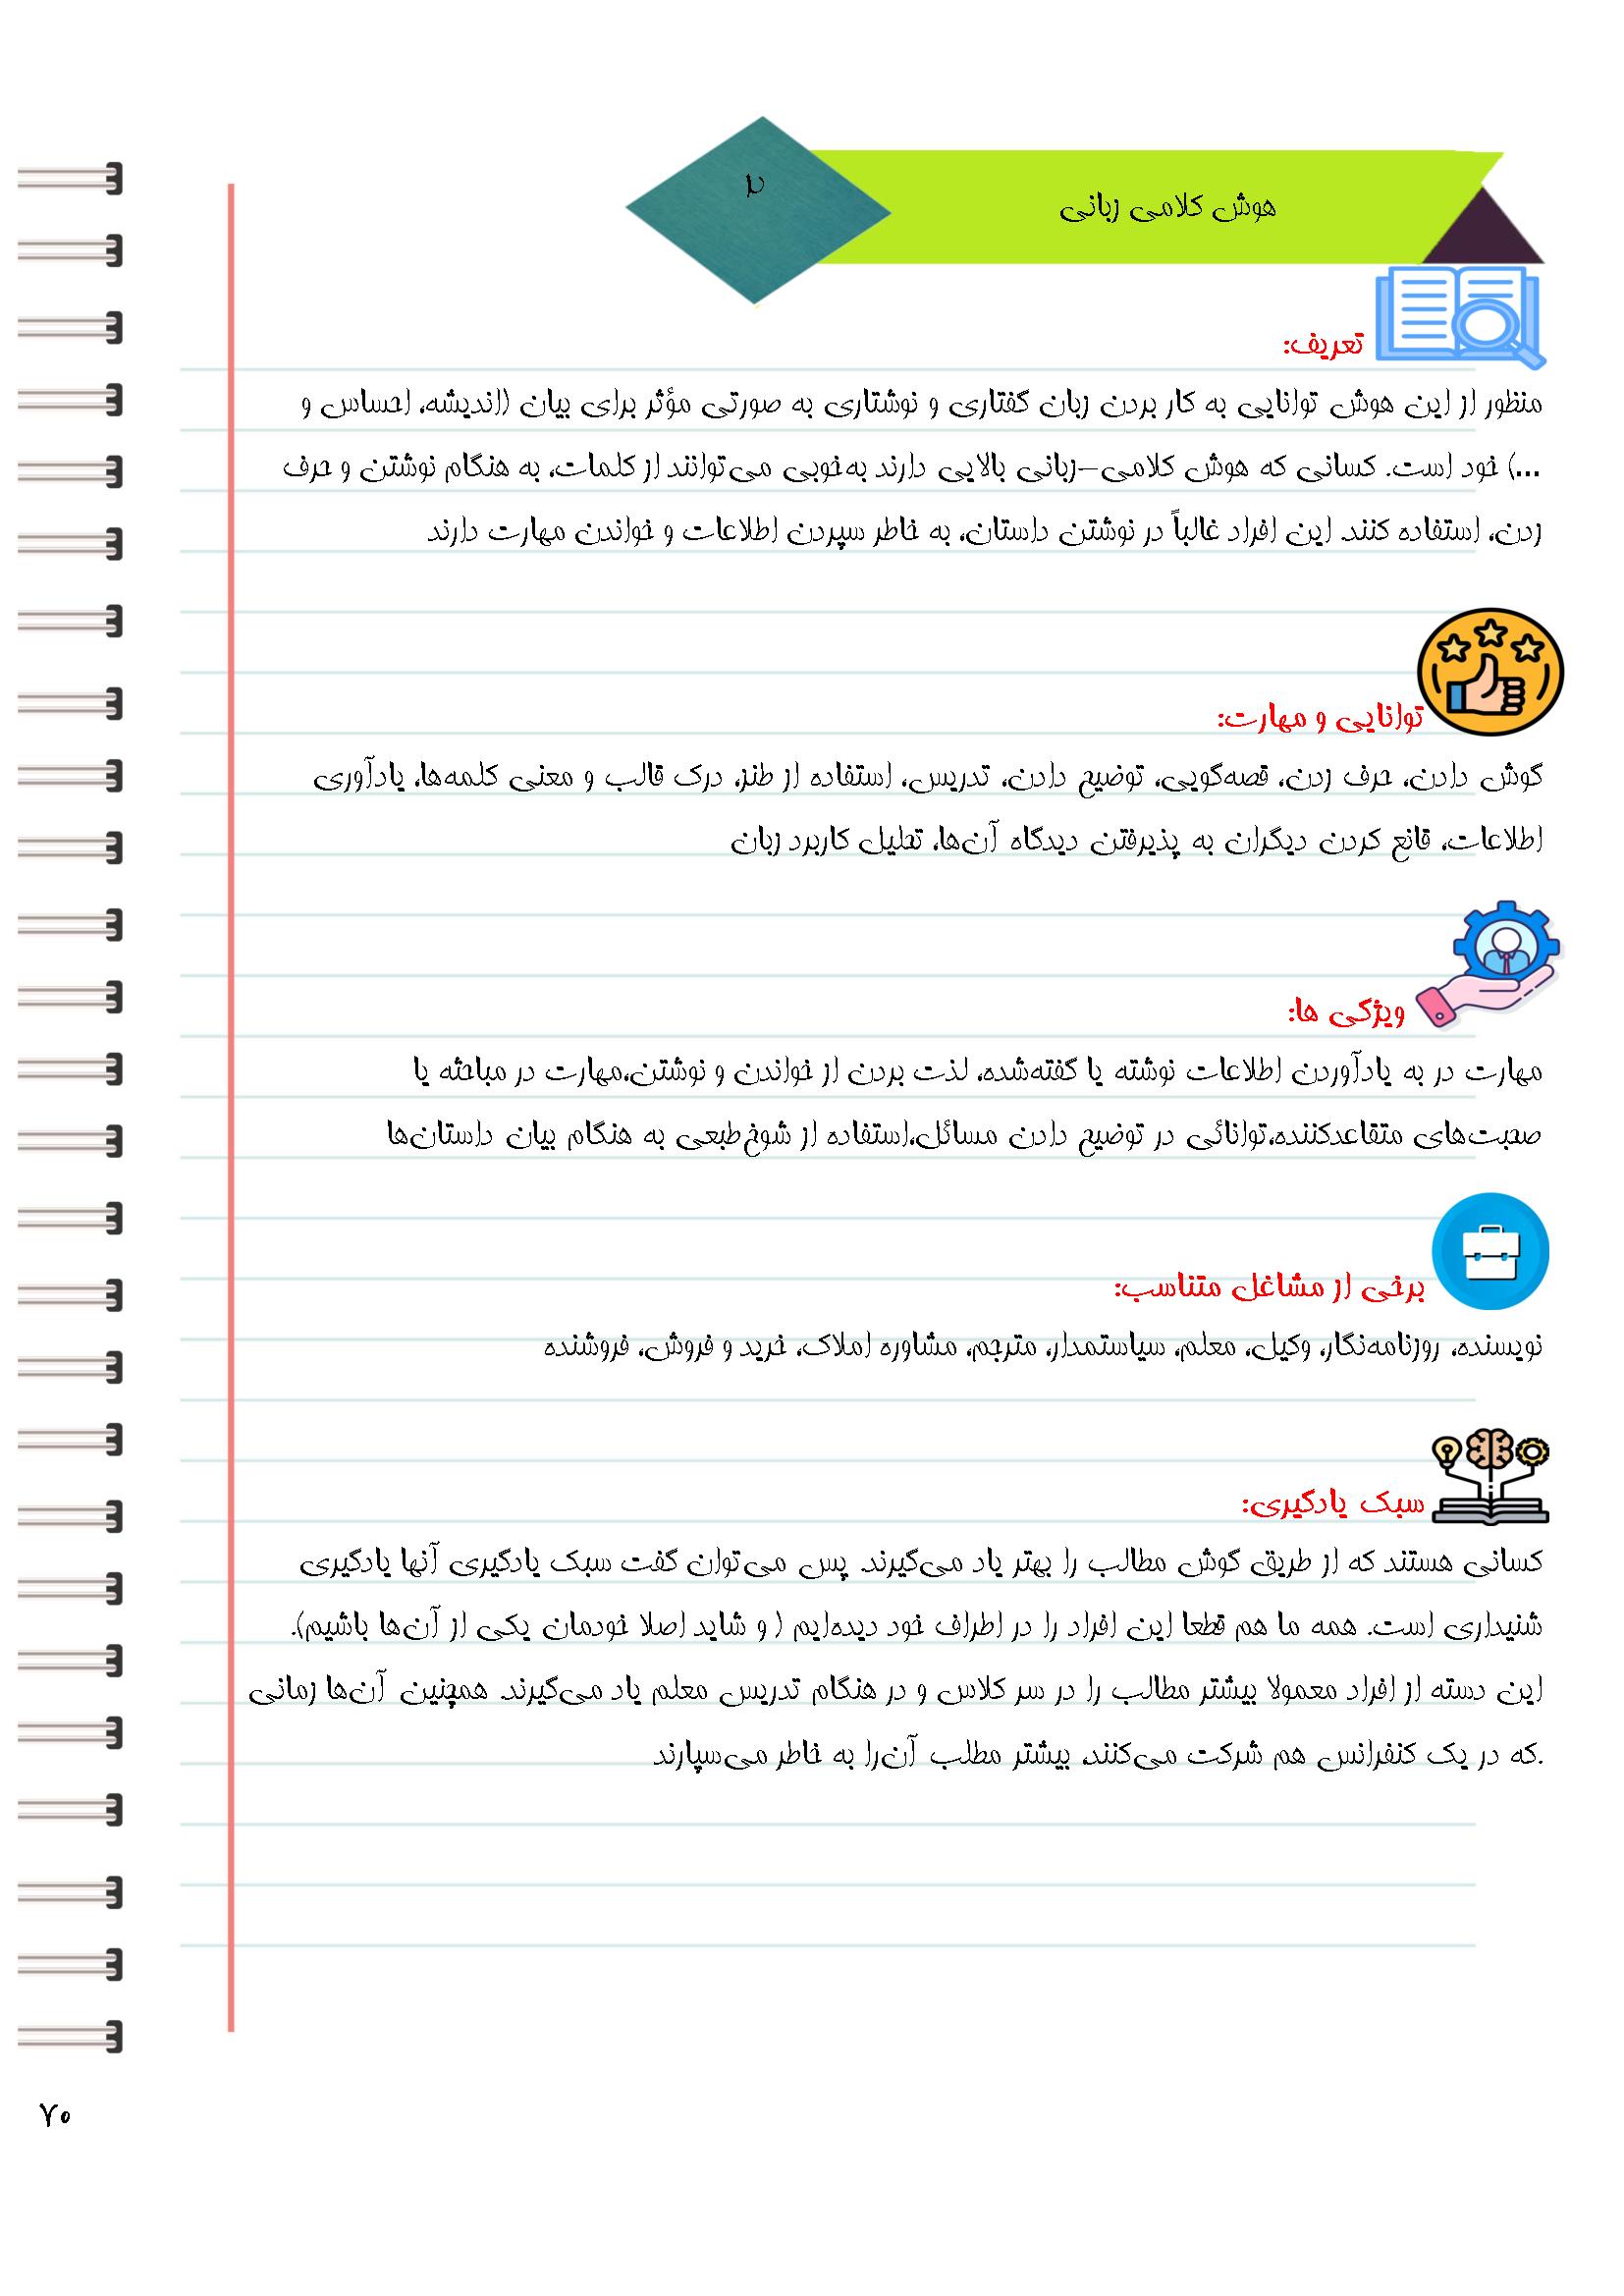 هوش کلامی زبانی
۲
تعریف:
منظور از این هوش توانایی به کار بردن زبان گفتاری و نوشتاری به صورتی مؤثر برای بیان (اندیشه، احساس و
...) خود است. کسانی که هوش کلامی-زبانی بالایی دارند به‌خوبی می‌توانند از کلمات، به هنگام نوشتن و حرف
زدن، استفاده کنند. این افراد غالباً در نوشتن داستان، به خاطر سپردن اطلاعات و خواندن مهارت دارند
توانایی و مهارت:
گوش دادن، حرف زدن، قصه‌گویی، توضیح دادن، تدریس، استفاده از طنز، درک قالب و معنی کلمه‌ها، یادآوری
اطلاعات، قانع کردن دیگران به پذیرفتن دیدگاه آن‌ها، تحلیل کاربرد زبان
ویژگی ها:
مهارت در به یادآوردن اطلاعات نوشته یا گفته‌شده، لذت بردن از خواندن و نوشتن،مهارت در مباحثه یا
صحبت‌های متقاعدکننده،توانائی در توضیح دادن مسائل،استفاده از شوخ‌طبعی به هنگام بیان داستان‌ها
برخی از مشاغل متناسب:
نویسنده، روزنامه‌نگار، وکیل، معلم، سیاستمدار، مترجم، مشاوره املاک، خرید و فروش، فروشنده
سبک یادگیری:
کسانی هستند که از طریق گوش مطالب را بهتر یاد می‌گیرند. پس می‌توان گفت سبک یادگیری آنها یادگیری
شنیداری است. همه ما هم قطعا این افراد را در اطراف خود دیده‌ایم ( و شاید اصلا خودمان یکی از آن‌ها باشیم).
این دسته از افراد معمولا بیشتر مطالب را در سر کلاس و در هنگام تدریس معلم یاد می‌گیرند. همچنین آن‌ها زمانی
.که در یک کنفرانس هم شرکت می‌کنند، بیشتر مطلب آن‌را به خاطر می‌سپارند
۷۰